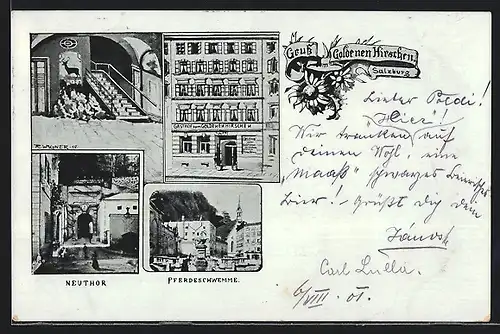 Gruß
v.
Goldenen Hirschen.
Salzburg
GASTHOF ZUM GOLDENEN HIRSCHEN
R. WAGNER
NEUTHOR
PFERDESCHWEMME.
Lieber Poldi!
"Hier"!
Wir tranken auf
deinen Wohl, eine
"Maaß" schwarzes
Bier! – Grüßt dich dein
János
Carl
6/VIII. 01.